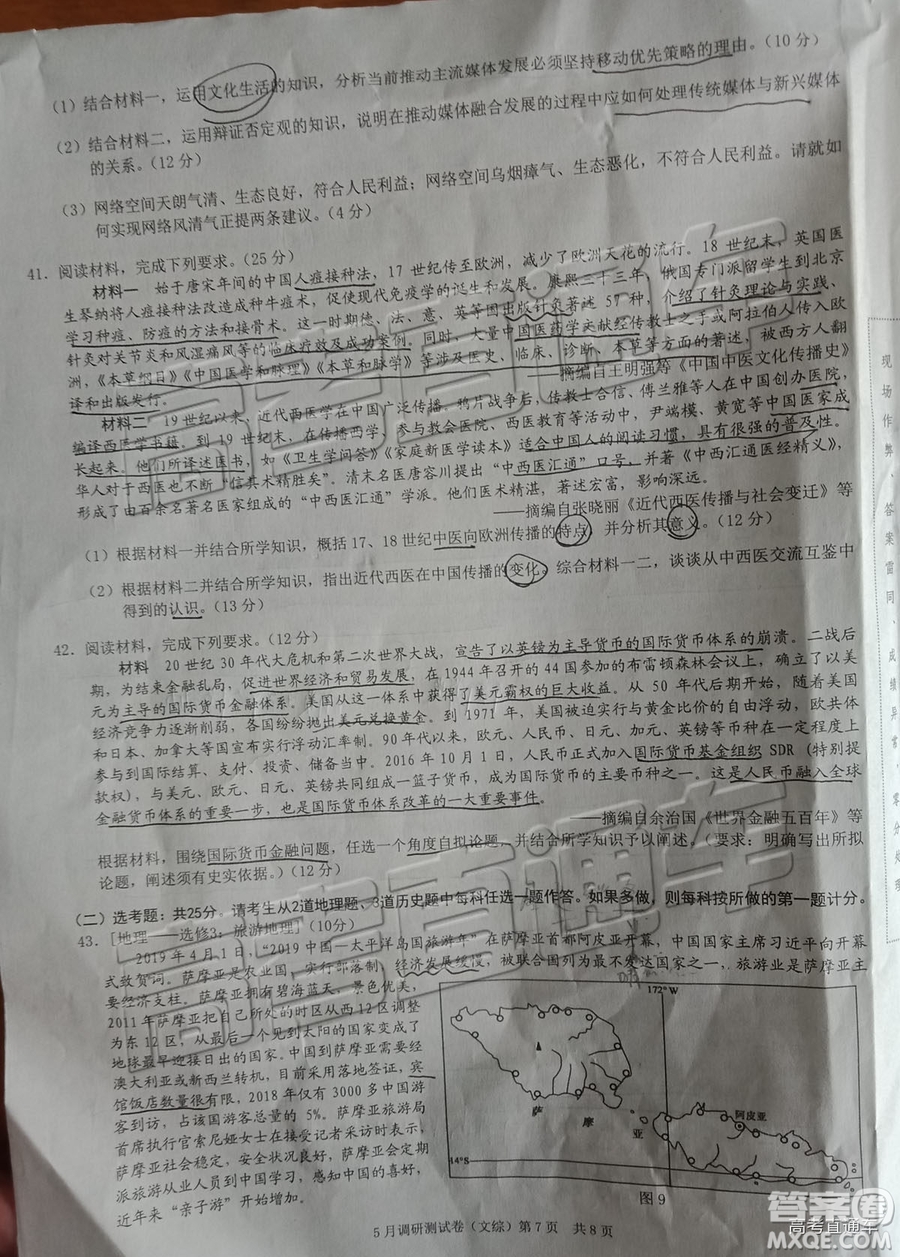 (1)结合材料一，运用文化生活的知识，分析当前推动主流媒体发展必须坚持移动优先策略的理由。(10分)
(2)结合材料二，运用辩证否定观的知识，说明在推动媒体融合发展的过程中应如何处理传统媒体与新兴媒体
的关系。(12分)
(3)网络空间天朗气清、生态良好，符合人民利益；网络空间乌烟瘴气、生态恶化，不符合人民利益。请就如
何实现网络风清气正提两条建议。(4分)
41. 阅读材料，完成下列要求。(25分)
材料一 始于唐宋年间的中国人痘接种法，17世纪传至欧洲，减少了欧洲天花的流行。18世纪末，英国医
生琴纳将人痘接种法改造成种牛痘术，促使现代免疫学的诞生和发展。康熙三十三年，俄国专门派留学生到北京
学习种痘、防痘的方法和接骨术。这一时期德、法、意、英等国出版针灸著述57种，介绍了针灸理论与实践、
针灸对关节炎和风湿痛风等的临床疗效及成功案例。同时，大量中国医药学文献经传教士之手或阿拉伯人传入欧
洲，《本草纲目》《中国医学和脉理》《本草和脉学》等涉及医史、临床、诊断、本草等方面的著述，被西方人翻
译和出版发行。
——摘编自王明强等《中国中医文化传播史》
材料二 19世纪以来，近代西医学在中国广泛传播。鸦片战争后，传教士合信、傅兰雅等人在中国创办医院，
编译西医学书籍。到19世纪末，在传播西学、参与教会医院、西医教育等活动中，尹端模、黄宽等中国医家成
长起来。他们所译述医书，如《卫生学问答》《家庭新医学读本》适合中国人的阅读习惯，具有很强的普及性。
华人对于西医也不断“信其术精胜矣”。清末名医唐容川提出“中西医汇通”口号，并著《中西汇通医经精义》，
形成了由百余名著名医家组成的“中西医汇通”学派。他们医术精湛，著述宏富，影响深远。
——摘编自张晓丽《近代西医传播与社会变迁》等
(1)根据材料一并结合所学知识，概括17、18世纪中医向欧洲传播的特点 并分析其意义。(12分)
(2)根据材料二并结合所学知识，指出近代西医在中国传播的变化。综合材料一二，谈谈从中西医交流互鉴中
得到的认识。(13分)
42. 阅读材料，完成下列要求。(12分)
材料 20世纪30年代大危机和第二次世界大战，宣告了以英镑为主导货币的国际货币体系的崩溃。二战后
期，为结束金融乱局，促进世界经济和贸易发展，在1944年召开的44国参加的布雷顿森林会议上，确立了以美
元为主导的国际货币金融体系。美国从这一体系中获得了美元霸权的巨大收益。从50年代后期开始，随着美国
经济竞争力逐渐削弱，各国纷纷抛出美元兑换黄金。到1971年，美国被迫实行与黄金比价的自由浮动，欧共体
和日本、加拿大等国宣布实行浮动汇率制。90年代以来，欧元、日元、加元、英镑等币种在一定程度上
参与到国际结算、支付、投资、储备当中。2016年10月1日，人民币正式加入国际货币基金组织SDR（特别提
款权），与美元、欧元、日元、英镑共同组成一篮子货币，成为国际货币的主要币种之一。这是人民币融入全球
金融货币体系的重要一步，也是国际货币体系改革的一大重要事件。
——摘编自余治国《世界金融五百年》等
根据材料，围绕国际货币金融问题，任选一个角度自拟论题，并结合所学知识予以阐述。（要求：明确写出所拟
论题，阐述须有史实依据。）(12分)
（二）选考题：共25分。请考生从2道地理题、3道历史题中每科任选一题作答。如果多做，则每科按所做的第一题计分。
43. [地理——选修3：旅游地理](10分)
2019年4月1日，“2019中国—太平洋岛国旅游年”在萨摩亚首都阿皮亚开幕，中国国家主席习近平向开幕
式致贺词。萨摩亚是农业国，实行部落制，经济发展缓慢，被联合国列为最不发达国家之一。旅游业是萨摩亚主
要经济支柱。萨摩亚拥有碧海蓝天，景色优美，
2011年萨摩亚把自己所处的时区从西12区调整
为东12区，从最后一个见到太阳的国家变成了
地球最早迎接日出的国家。中国到萨摩亚需要经
澳大利亚或新西兰转机，目前采用落地签证，宾
馆饭店数量很有限，2018年仅有3000多中国游
客到访，占该国游客总量的5%。萨摩亚旅游局
首席执行官索尼娅女士在接受记者采访时表示，
萨摩亚社会稳定，安全状况良好，萨摩亚会定期
派旅游从业人员到中国学习，感知中国的喜好，
近年来“亲子游”开始增加。
172°W
萨 摩 亚
阿皮亚
14°S
图9
5月调研测试卷（文综）第7页 共8页
现场作弊、答案雷同，成绩异常，零分处理
高考直通车
答案圈
MXQE.COM
高考直通车